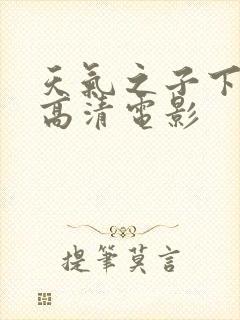 天氣之子下
高清電影
提筆莫言